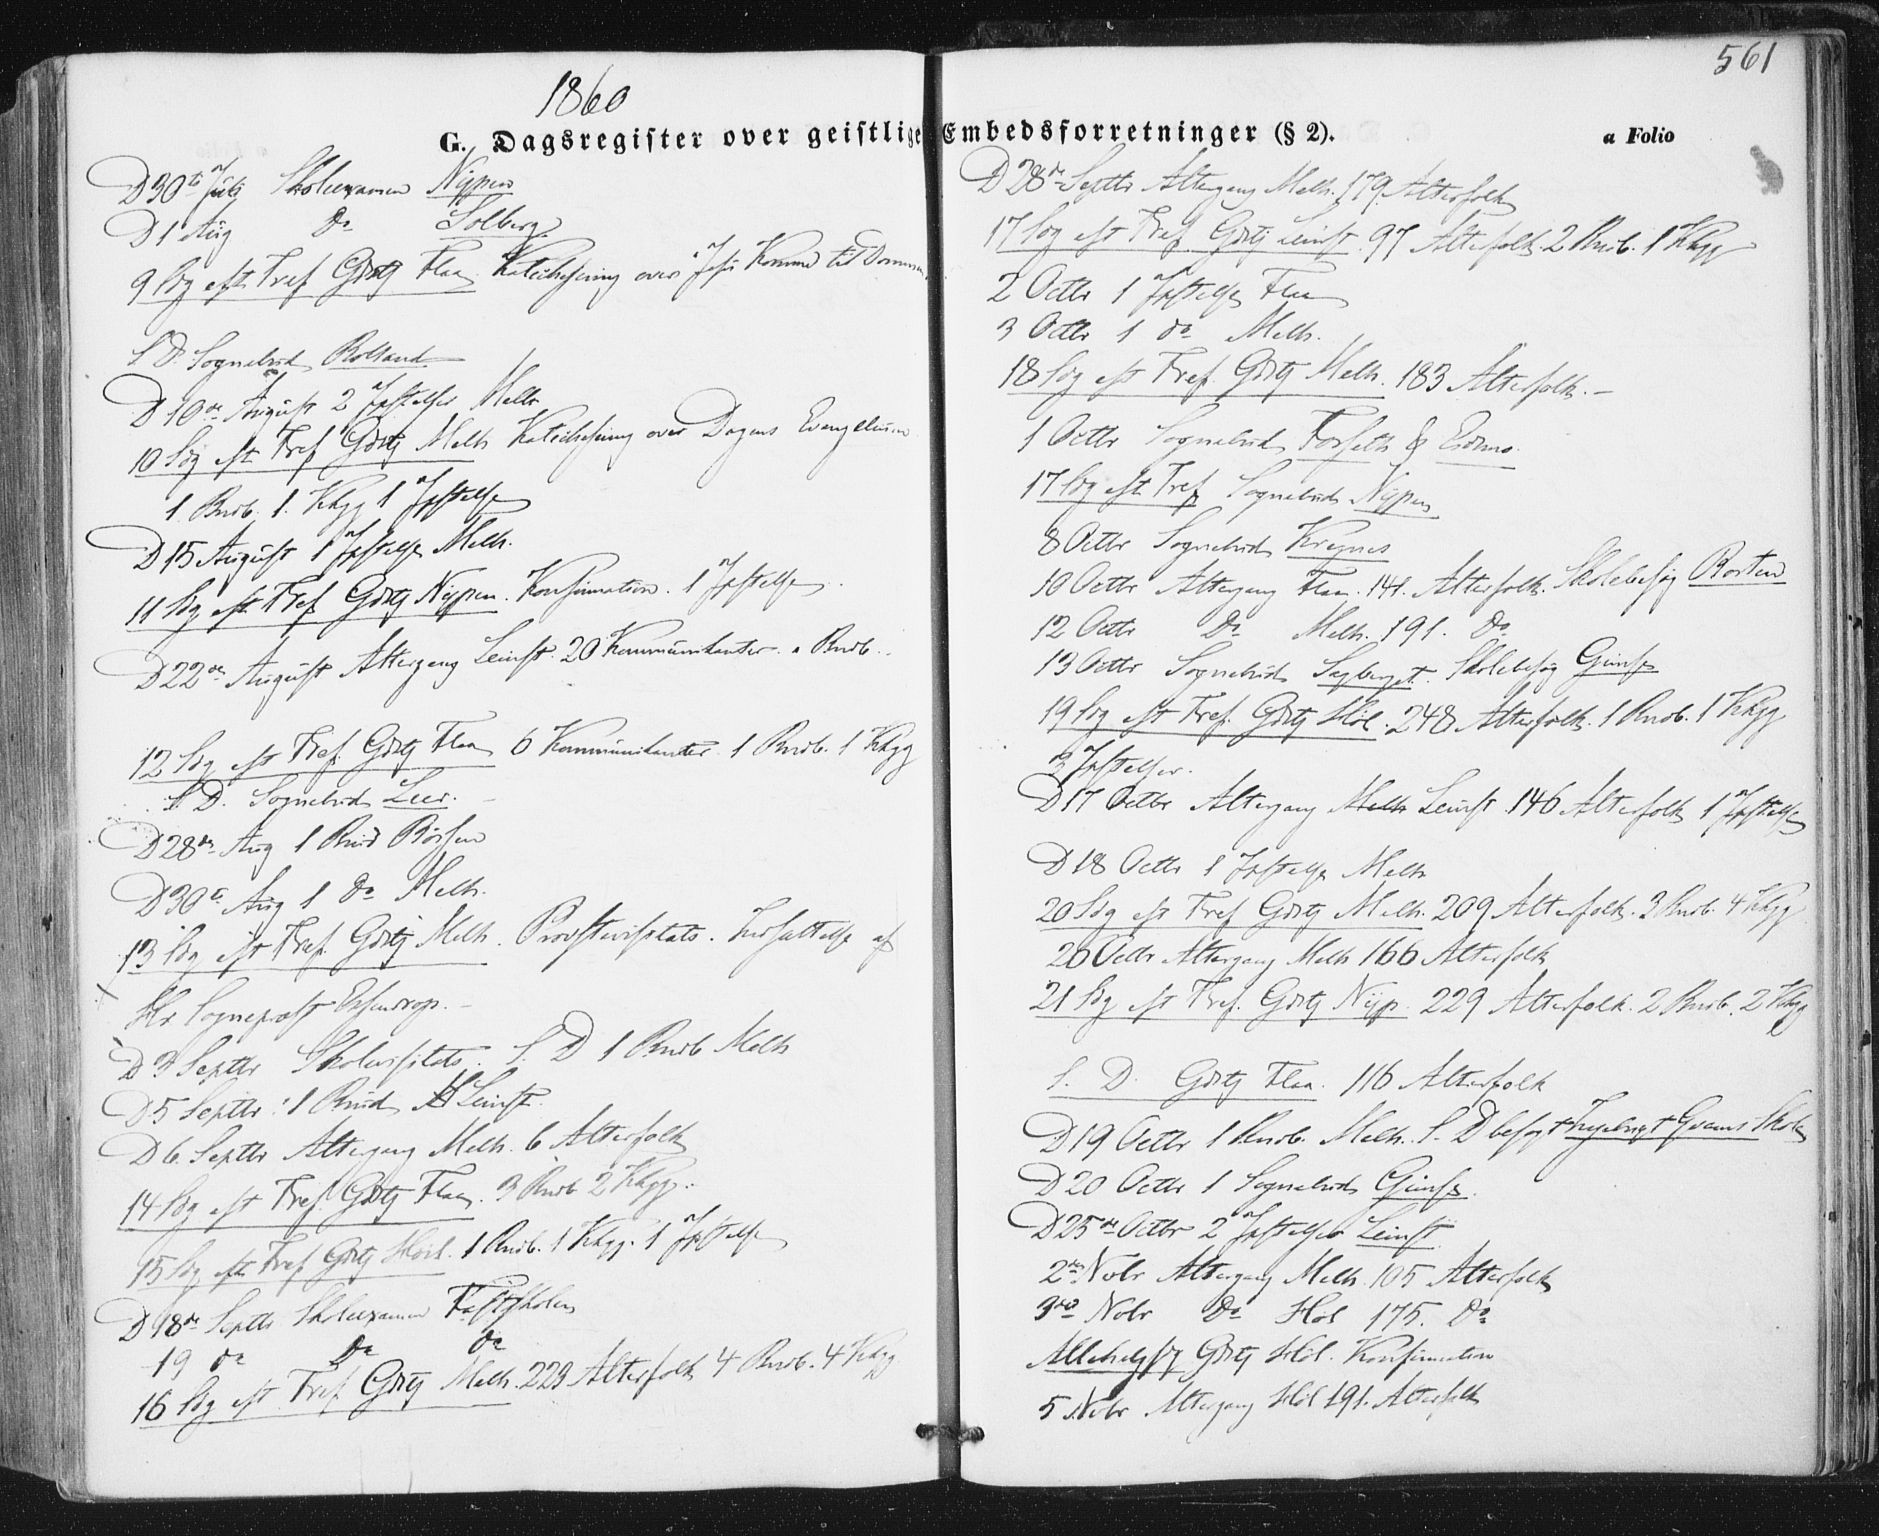 1860
561
G. Dagsregister over geistlige Embedsforretninger (§ 2).
a Folio
D 30te Juli Skoleexamen Nypen
D 1 Aug Do Solberg.
9 Sdg eft Tref Gdstj Flaa Katechesering over Jesu Komme til Dommen
S. D. Sognebud Rolland
D 10de August 2 Jpstelser Melh
10 Sdg eft Tref Gdstj Melh Katechesering over Dagens Evangelium
1 Brvb. 1. Kkgg 1 Jpstelse
D 15 August 1 Jpstelse Melh.
11 Sdg eft Tref Gdstj Nypen. Konfirmation. 1 Jpstelse.
D 22de August Altergang Leinst. 20 Kommunikanter. 1 Brvb.
12 Sdg eft Tref. Gdstj Flaa 6 Kommunikanter. 1 Brvb. 1 Kkgg
S. D. Sognebud Leer.
D 28de Aug 1 Brud Børsen
D 30te Aug 1 Do Melh.
13 Sdg eft Tref. Gdstj Melh. Provstevisitats. Indsættelse af
Hr Sognepræst Essendrop.
D 3 Septbr Skolevisitats. S. D 1 Brvb Melh
D 5 Septbr: 1 Brud Leinst.
D 6. Septbr Altergang Melh. 6 Alterfolk
14 Sdg eft Tref. Gdstj Flaa. 3 Brvb 2 Kkgg.
15 Sdg eft Tref Gdstj Höil. 1 Brvb. 1 Kkgg. 1 Jpstelse
D 18de Septbr Skoleexamen Fastskolen
19 do Do do
16 Sdg eft Tref. Gdstj Melh. 223 Alterfolk 4 Brvb. 4 Kkgg
D 28de Septbr Altergang Melh. 179 Alterfolk
17 Sdg eft Tref. Gdstj Leinst. 97 Alterfolk 2 Brvb. 1 Kkgg
2 Octbr 1 Jpstelse Flaa
3 Octbr 1 do Melh.
18 Sdg eft Tref. Gdstj Melh. 183 Alterfolk.
1 Octbr Sognebud Forseth & Eidsmo.
17 Sdg eft Tref Sognebud Nypen
8 Octbr Sognebud Kregnes
10 Octbr Altergang Flaa. 141. Alterfolk. Skolebesøg Rosten
12 Octbr Do Melh. 191. Do
13 Octbr Sognebud Sagberget. Skolebesøg Gimse
19 Sdg eft Tref. Gdstj Höl. 248 Alterfolk. 1 Brvb. 1 Kkgg
3 Jpstelser.
D 17 Octbr Altergang Melh Leinst. 146 Alterfolk 1 Jpstelse
D 18 Octbr 1 Jpstelse Melh
20 Sdg eft Tref Gdstj Melh. 209 Alterfolk. 3 Brvb. 4 Kkgg
26 Octbr Altergang Melh 166 Alterfolk
21 Sdg eft Tref. Gdstj Nyp. 229 Alterfolk. 2 Brvb. 2 Kkgg
S. D. Gdstj Flaa. 116 Alterfolk
D 19 Octbr 1 Brvb. Melh. S. D besøgt Ingebrigt Grams Skole
D 20 Octbr 1 Sognebud Gimse.
D 25de Octbr 2 Jpstelser Leinst
2den Nobr Altergang Melh. 105 Alterfolk
3die Nobr Do Höl 175. Do
Allehelgsdg Gdstj Höl. Konfirmation
5 Nobr Altergang Höl 191. Alterfolk